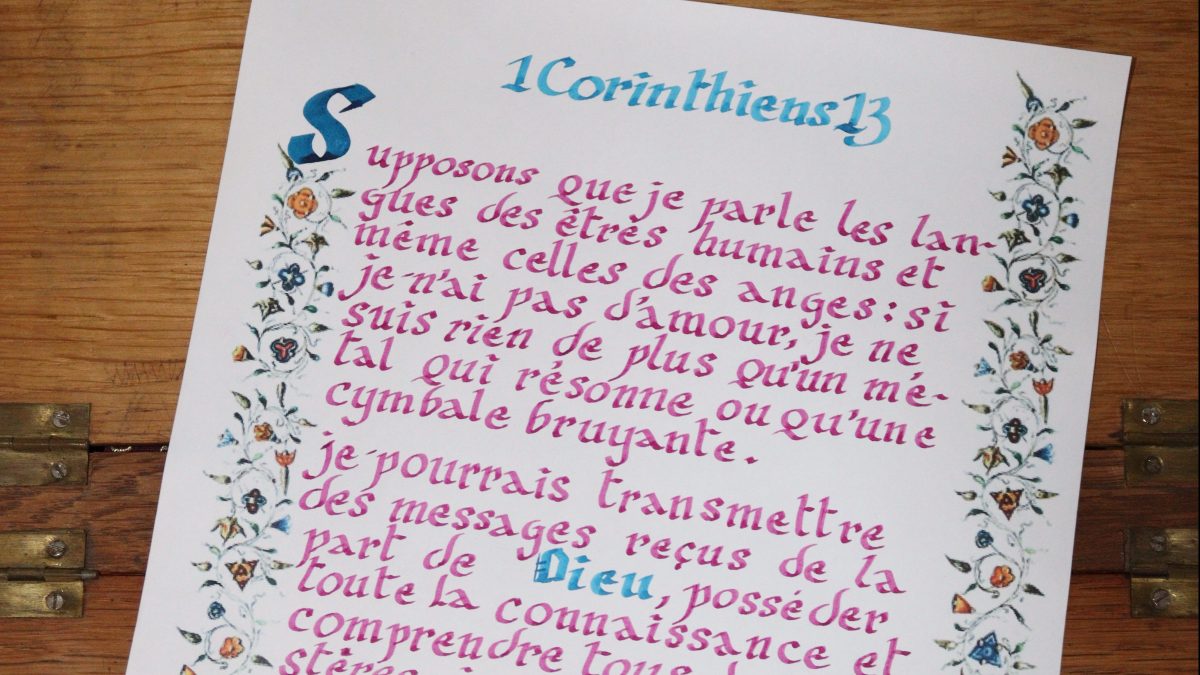 1 Corinthiens 13
Supposons que je parle les lan-
gues des êtres humains et
même celles des anges : si
je n'ai pas d'amour, je ne
suis rien de plus qu'un mé-
tal qui résonne ou qu'une
cymbale bruyante.
je pourrais transmettre
des messages reçus de la
part de Dieu, posséder
toute la connaissance et
comprendre tous